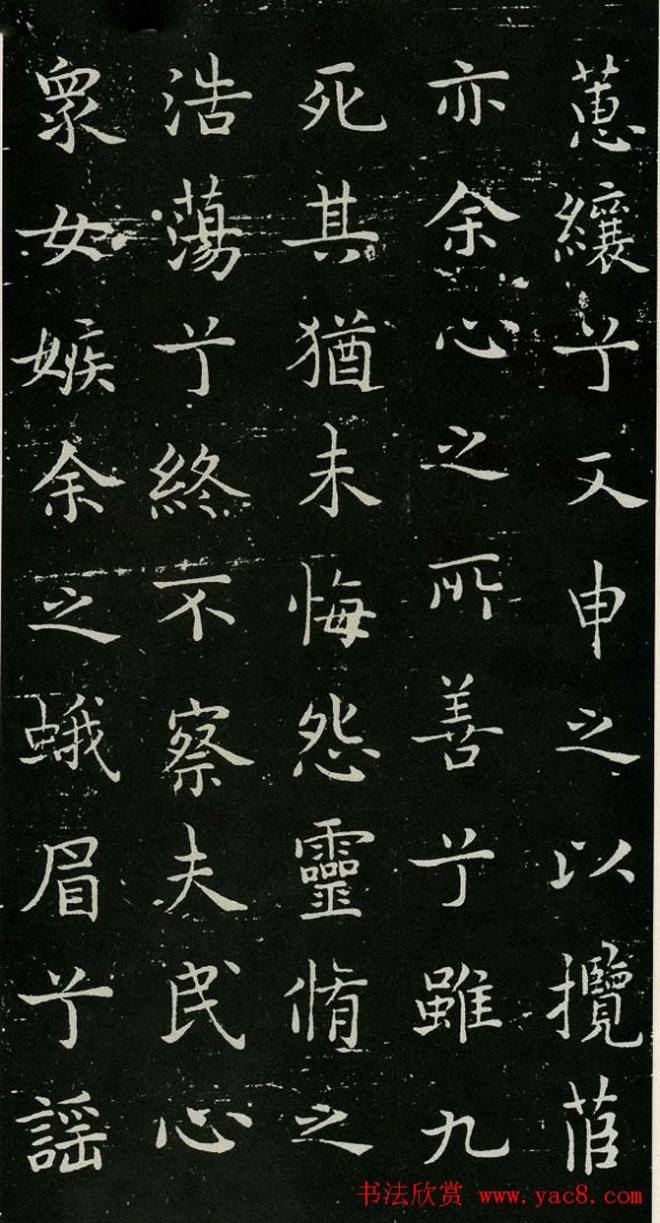 蕙纕兮又申之以攬茝
亦余心之所善兮雖九
死其猶未悔怨靈脩之
浩蕩兮終不察夫民心
衆女嫉余之蛾眉兮謡
书法欣赏 www.yac8.com